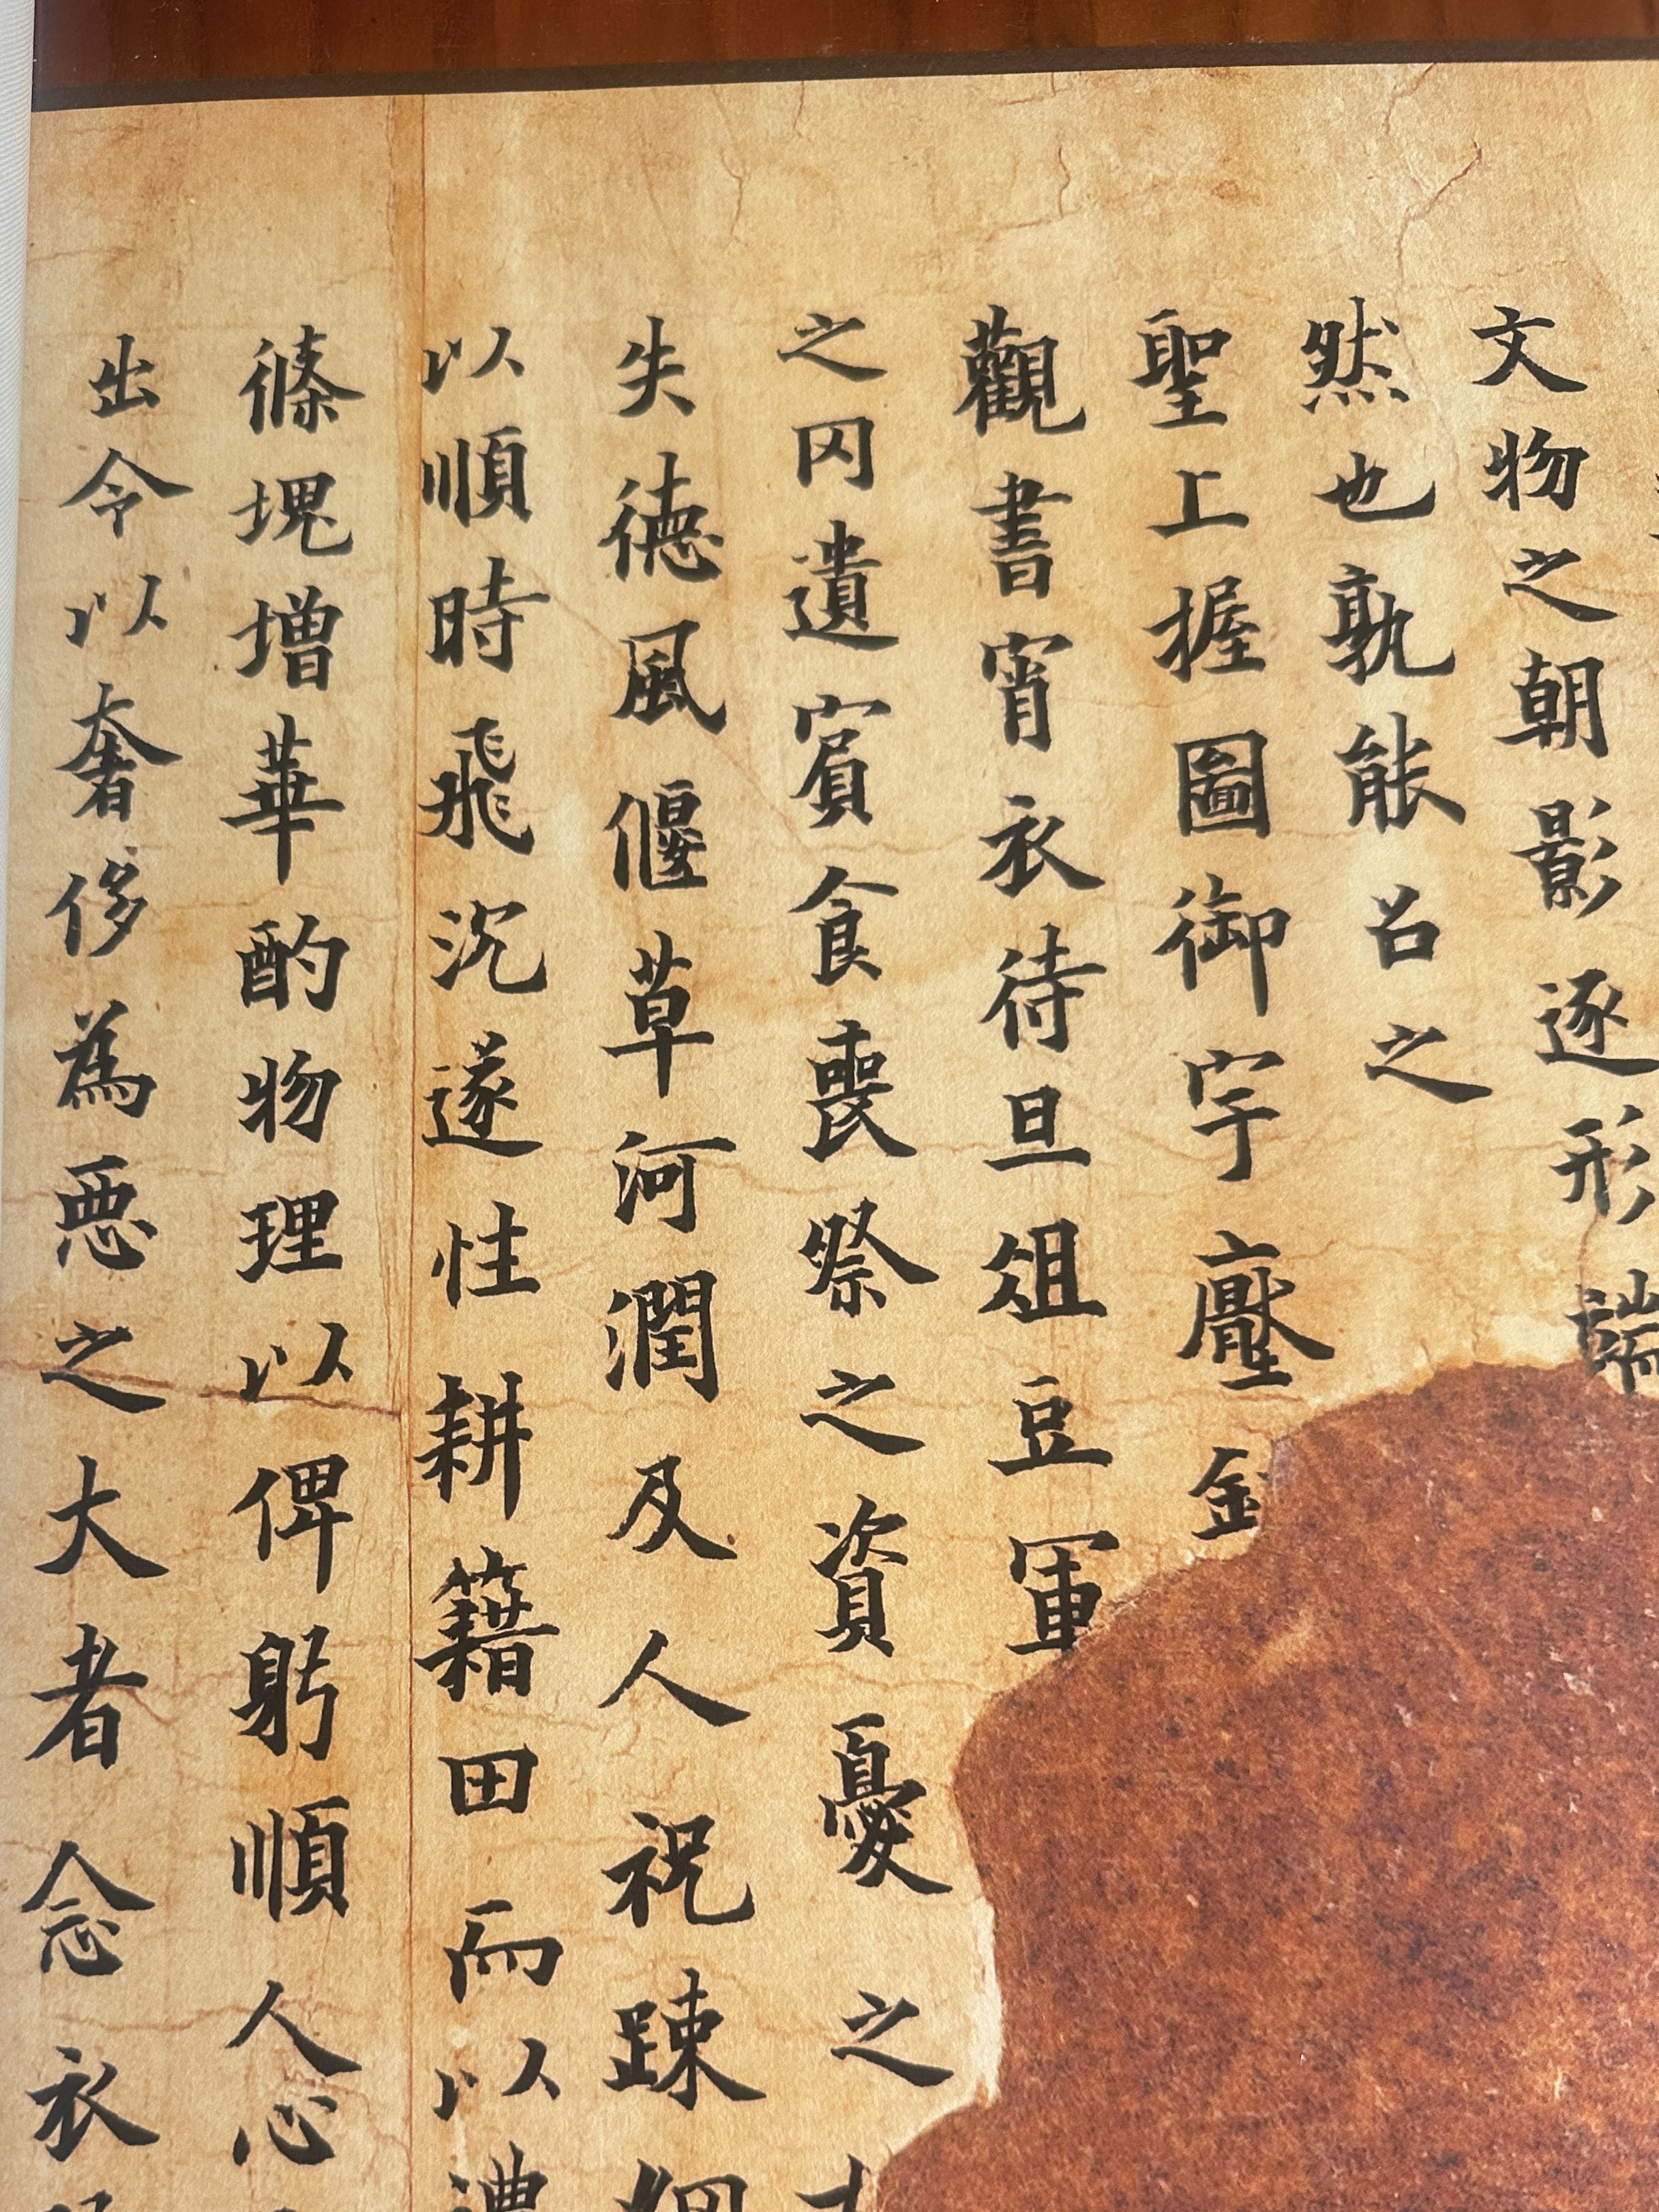 文物之朝影逐形端
然也孰能名之
聖上握圖御宇壓
觀書宵衣待旦俎豆軍
之罔遺賓食喪祭之資憂之
失德風偃草河潤及人祝踈網
以順時飛沉遂性耕籍田而以
滌塊增華酌物理以俾躬順人心
出令以奢侈為惡之大者念衣